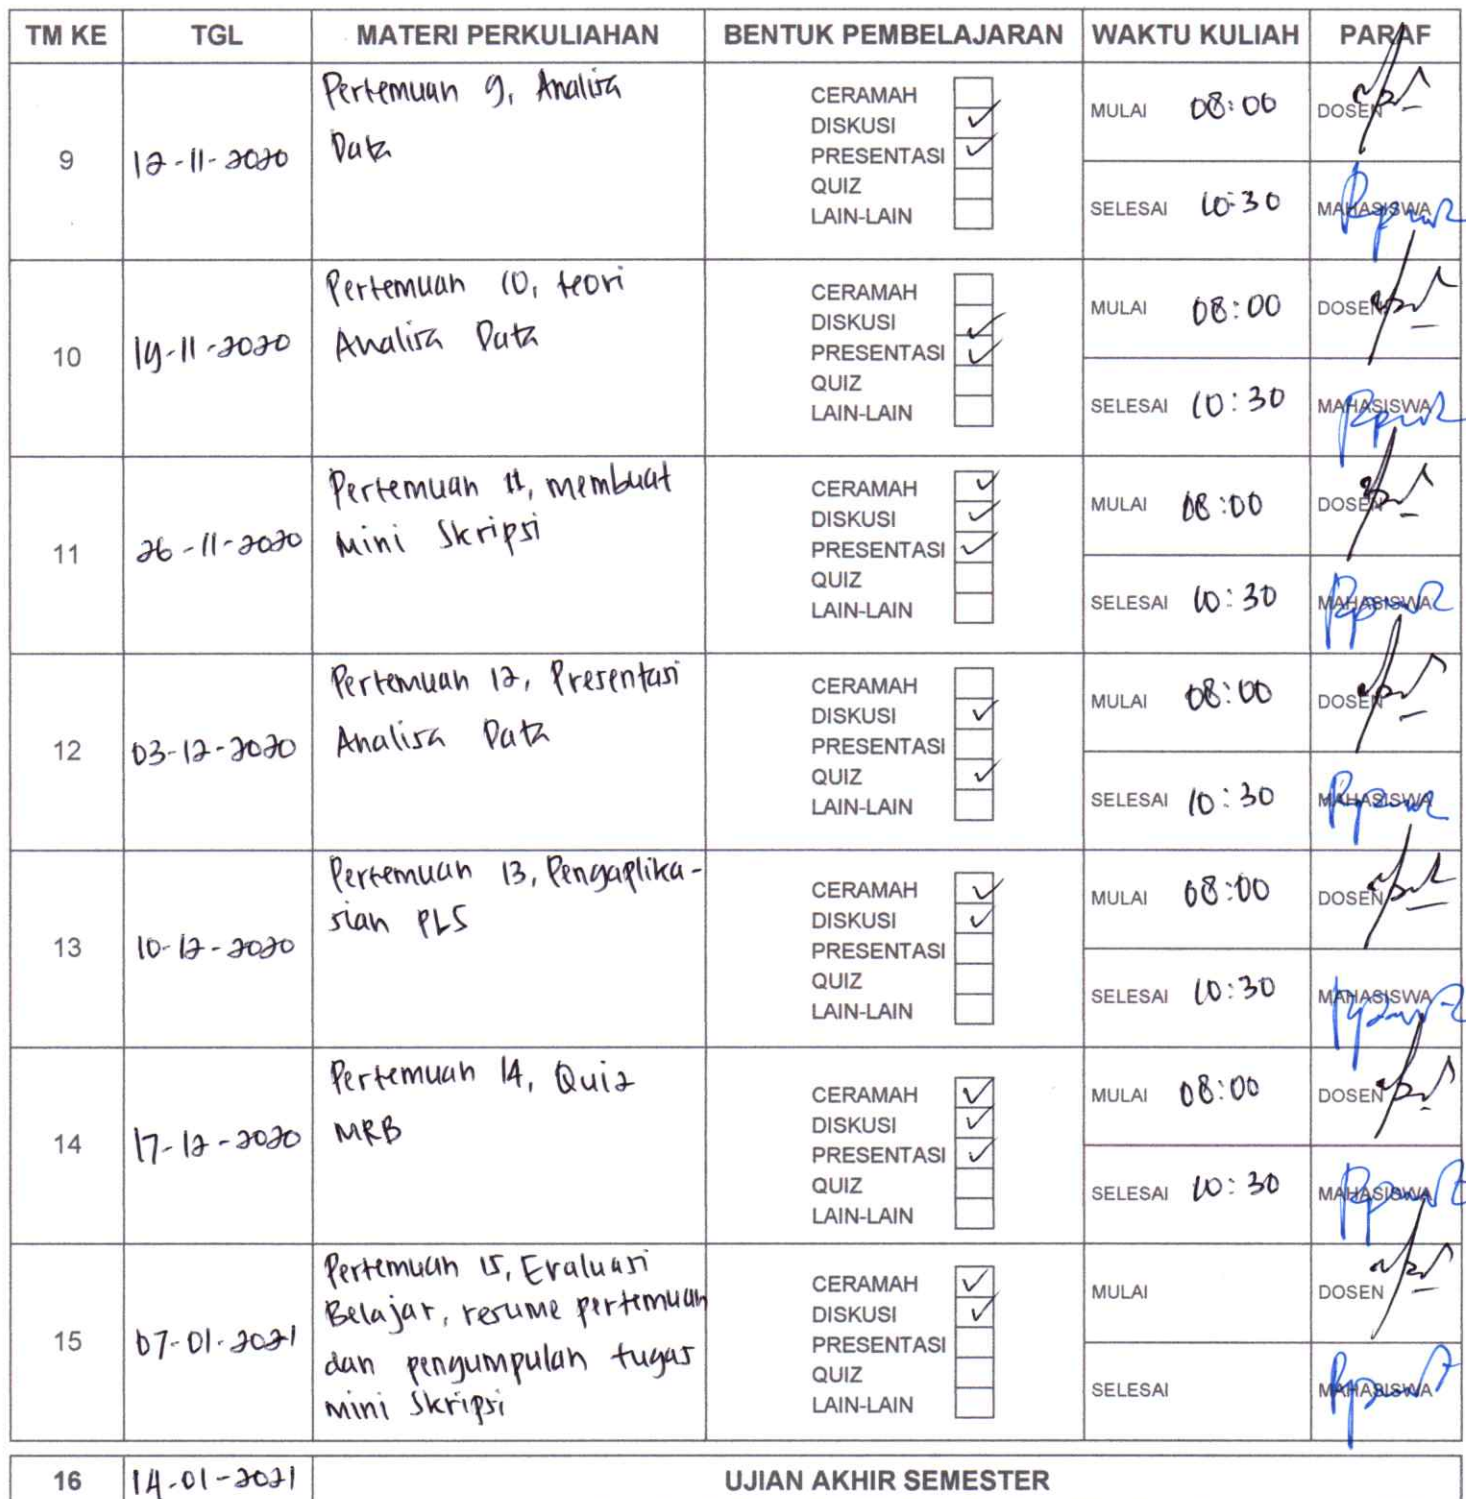 TM KE TGL MATERI PERKULIAHAN BENTUK PEMBELAJARAN WAKTU KULIAH PARAF
9 12-11-2020 Pertemuan 9, Analisa
Data
CERAMAH
DISKUSI ✓
PRESENTASI ✓
QUIZ
LAIN-LAIN
MULAI 08:00 DOSEN
SELESAI 10:30 MAHASISWA
10 19-11-2020 Pertemuan 10, teori
Analisa Data
CERAMAH
DISKUSI ✓
PRESENTASI ✓
QUIZ
LAIN-LAIN
MULAI 08:00 DOSEN
SELESAI 10:30 MAHASISWA
11 26-11-2020 Pertemuan 11, membuat
Mini Skripsi
CERAMAH ✓
DISKUSI ✓
PRESENTASI ✓
QUIZ
LAIN-LAIN
MULAI 08:00 DOSEN
SELESAI 10:30 MAHASISWA
12 03-12-2020 Pertemuan 12, Presentasi
Analisa Data
CERAMAH
DISKUSI ✓
PRESENTASI
QUIZ ✓
LAIN-LAIN
MULAI 08:00 DOSEN
SELESAI 10:30 MAHASISWA
13 10-12-2020 Pertemuan 13, Pengaplika-
sian PLS
CERAMAH ✓
DISKUSI ✓
PRESENTASI
QUIZ
LAIN-LAIN
MULAI 08:00 DOSEN
SELESAI 10:30 MAHASISWA
14 17-12-2020 Pertemuan 14, Quiz
MRB
CERAMAH ✓
DISKUSI ✓
PRESENTASI ✓
QUIZ
LAIN-LAIN
MULAI 08:00 DOSEN
SELESAI 10:30 MAHASISWA
15 07-01-2021 Pertemuan 15, Evaluasi
Belajar, resume pertemuan
dan pengumpulan tugas
mini Skripsi
CERAMAH ✓
DISKUSI ✓
PRESENTASI
QUIZ
LAIN-LAIN
MULAI DOSEN
SELESAI MAHASISWA
16 14-01-2021 UJIAN AKHIR SEMESTER